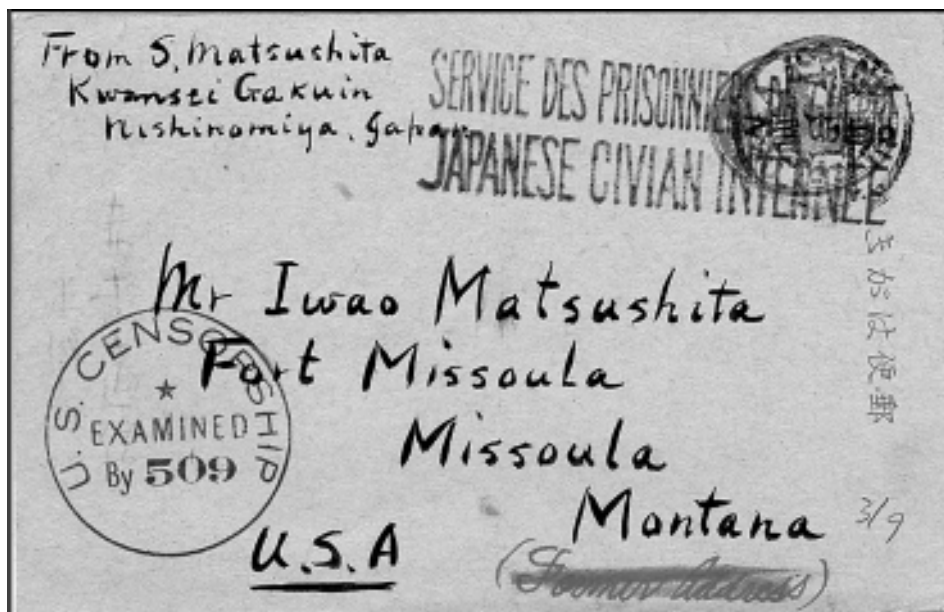 From S. Matsushita
Kwansei Gakuin
Nishinomiya, Japan
SERVICE DES PRISONNIERS
JAPANESE CIVIAN INTERNEE
きがは便郵
Mr Iwao Matsushita
Fort Missoula
Missoula
Montana
U.S.A
(Former Address)
3/9
U.S. CENSORSHIP
EXAMINED
By 509